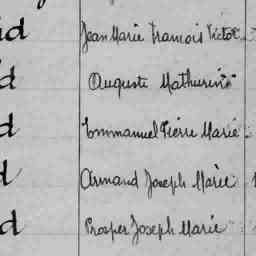 id Jean Marie François Victor
d Auguste Mathurin
d Emmanuel Pierre Marie
d Armand Joseph Marie
d Prosper Joseph Marie